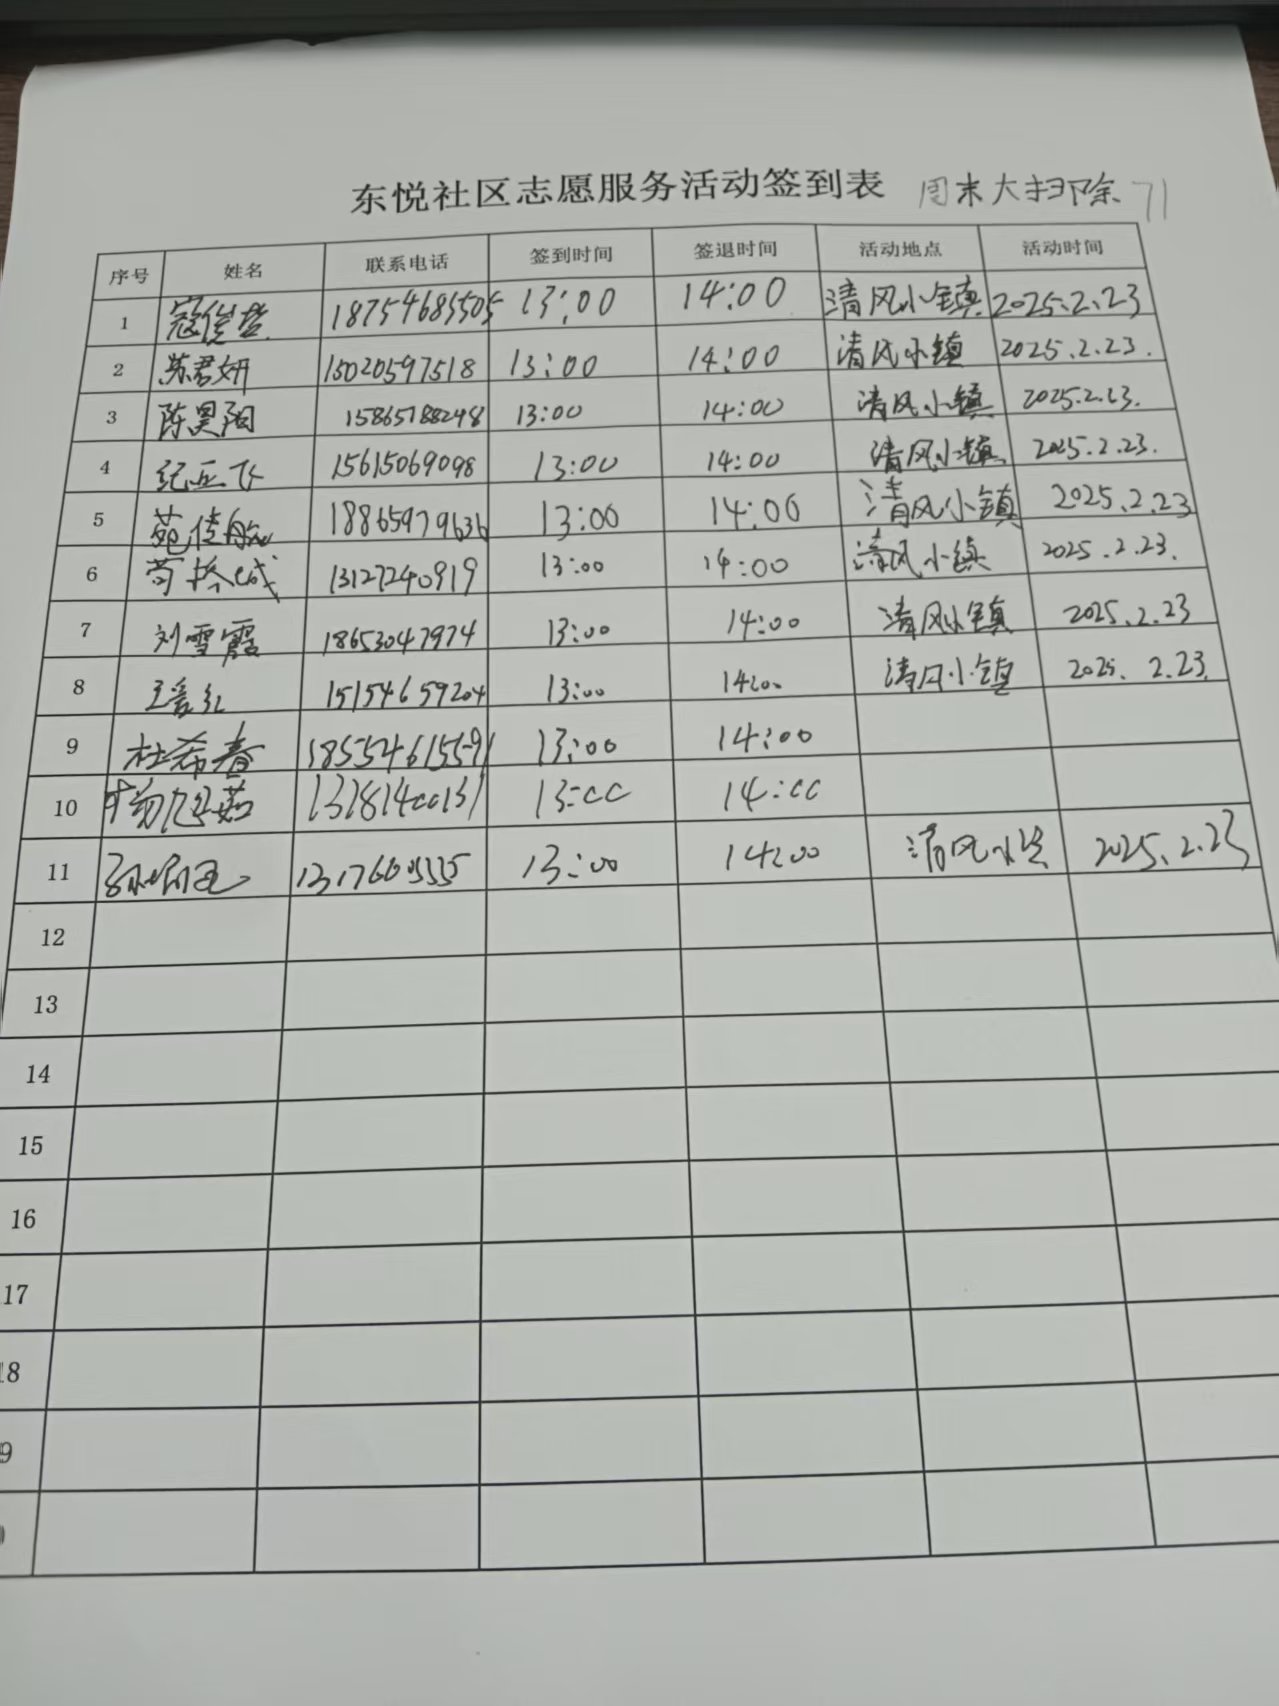 东悦社区志愿服务活动签到表 周末大扫除 71
序号 姓名 联系电话 签到时间 签退时间 活动地点 活动时间
1 寇俊哲 18754685505 13:00 14:00 清风小镇 2025.2.23
2 苏君妍 15020597518 13:00 14:00 清风小镇 2025.2.23.
3 陈昊阳 15865188298 13:00 14:00 清风小镇 2025.2.23.
4 纪亚飞 15615069098 13:00 14:00 清风小镇 2025.2.23.
5 苑佳航 18865979636 13:00 14:00 清风小镇 2025.2.23
6 13127240919 13:00 14:00 清风小镇 2025.2.23.
7 刘雪霞 18653047974 13:00 14:00 清风小镇 2025.2.23
8 王爱红 15154659204 13:00 14:00 清风小镇 2025.2.23.
9 杜希春 18554615591 13:00 14:00
10 13181400131 13:00 14:00
11 13:00 14:00 清风小镇 2025.2.23
12
13
14
15
16
17
18
9